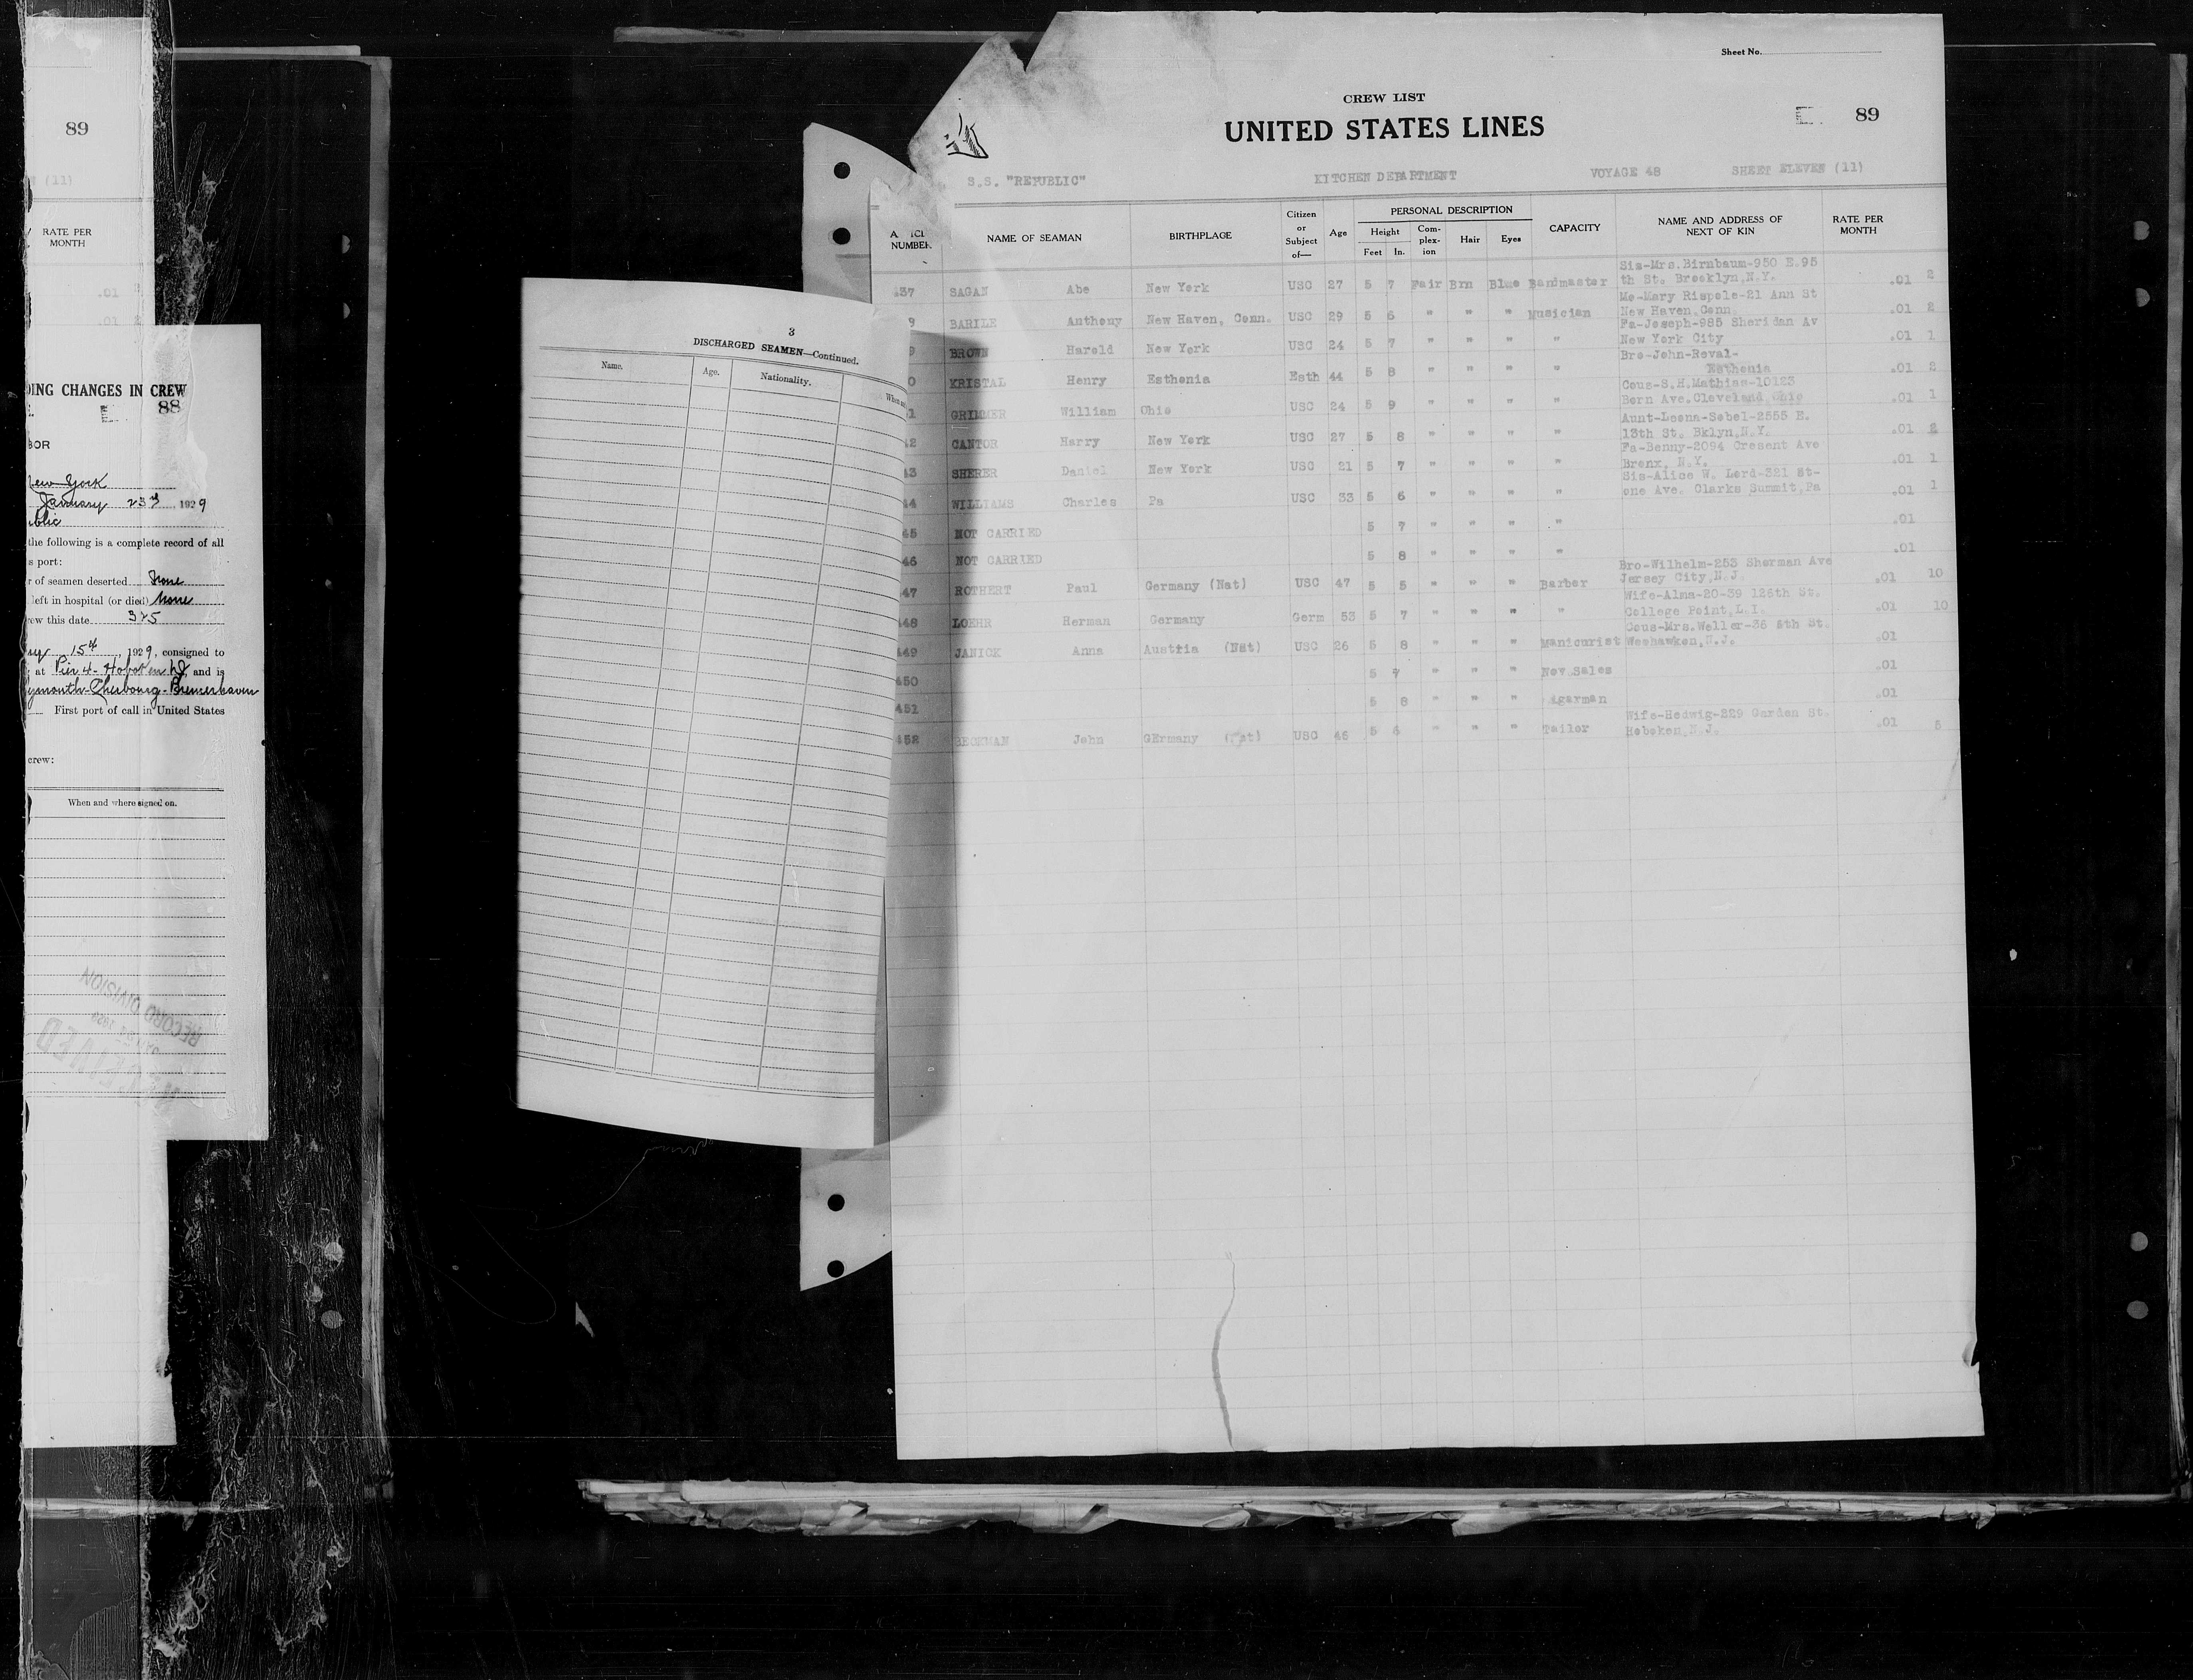 89
(11)
RATE PER
MONTH
.01
.01
DING CHANGES IN CREW
E. 88
BOR
New York
January 23d 1929
ublic
the following is a complete record of all
s port:
r of seamen deserted None
left in hospital (or died) None
rew this date 325
ary 15th, 1929, consigned to
at Pier 4 - Hoboken NJ, and is
lymouth-Cherbourg-Bremerhaven
First port of call in United States
crew:
When and where signed on.
RECORD DIVISION
3
DISCHARGED SEAMEN—Continued.
Name. Age. Nationality. When an
Sheet No.
CREW LIST
UNITED STATES LINES
E. 89
S.S. "REPUBLIC" KITCHEN DEPARTMENT VOYAGE 48 SHEET ELEVEN (11)
A ICL NUMBER NAME OF SEAMAN BIRTHPLACE Citizen or Subject of— Age PERSONAL DESCRIPTION Height Feet In. Com-plex-ion Hair Eyes CAPACITY NAME AND ADDRESS OF NEXT OF KIN RATE PER MONTH
Sis-Mrs.Birnbaum-950 E.95
437 SAGAN Abe New York USC 27 5 7 Fair Brn Blue Bandmaster th St. Brooklyn,N.Y. .01 2
Mo-Mary Rispole-21 Ann St
9 BARILE Anthony New Haven, Conn. USC 29 5 6 " " " Musician New Haven,Conn .01 2
Fa-Joseph-985 Sheridan Av
9 BROWN Harold New York USC 24 5 7 " " " " New York City .01 1
Bro-John-Reval-
0 KRISTAL Henry Esthonia Esth 44 5 8 " " " " Esthonia .01 2
Cous-S.H.Mathias-10123
1 GRIMMER William Ohio USC 24 5 9 " " " " Bern Ave.Cleveland Ohio .01 1
Aunt-Leena-Sobel-2555 E.
42 CANTOR Harry New York USC 27 5 8 " " " " 13th St. Bklyn,N.Y. .01 2
Fa-Benny-2094 Cresent Ave
43 SHERER Daniel New York USC 21 5 7 " " " " Bronx, N.Y. .01 1
Sis-Alice W. Lord-321 St-
44 WILLIAMS Charles Pa USC 33 5 6 " " " " one Ave. Clarks Summit,Pa .01 1
45 NOT CARRIED 5 7 " " " " .01
46 NOT CARRIED 5 8 " " " " .01
Bro-Wilhelm-253 Sherman Ave
447 ROTHERT Paul Germany (Nat) USC 47 5 5 " " " Barber Jersey City,N.J. .01 10
Wife-Alma-20-39 125th St.
448 LOEHR Herman Germany Germ 53 5 7 " " " " College Point,L.I. .01 10
Cous-Mrs.Weller-36 5th St.
449 JANICK Anna Austria (Nat) USC 26 5 8 " " " Manicurist Weehawken,N.J. .01
450 5 7 " " " Nov.Sales .01
451 5 8 " " " igarman .01
Wife-Hedwig-229 Garden St.
452 BECKMAN John GErmany (Nat) USC 46 5 6 " " " Tailor Hoboken,N.J. .01 5